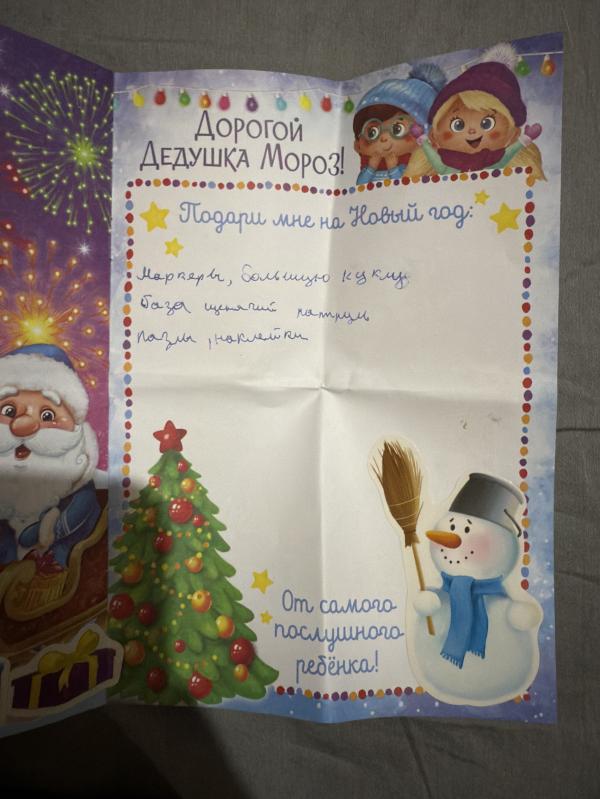 Дорогой
Дедушка Мороз!
Подари мне на Новый год:
Маркеры, большую куклу
база щенячий патруль
пазлы, наклейки
От самого
послушного
ребёнка!